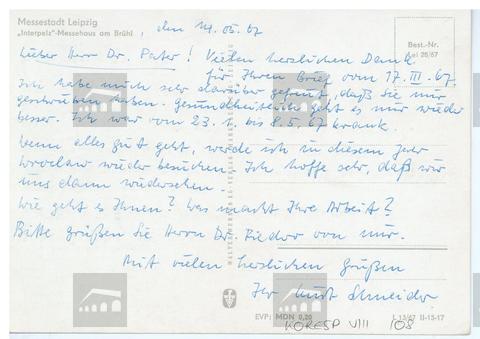 Messestadt Leipzig
„Interpelz"-Messehaus am Brühl
, den 14.05.67
Best.-Nr.
Lei 26/67
Lieber Herr Dr. Pater! Vielen herzlichen Dank
für Ihren Brief vom 17.III.67.
Ich habe mich sehr darüber gefreut, daß Sie mir
geschrieben haben. Gesundheitlich geht es mir wieder
besser. Ich war vom 23.1. bis 8.5.67 krank.
Wenn alles gut geht, werde ich in diesem Jahr
Wroclaw wieder besuchen. Ich hoffe sehr, daß wir
uns dann wiedersehen.
Wie geht es Ihnen? Was macht Ihre Arbeit?
Bitte grüßen Sie Herrn Dr. Fiedor von mir.
Mit vielen herzlichen Grüßen
Ihr Kurt Schneider
EVP: MDN 0,20
II-15-17
KORESP VIII /08